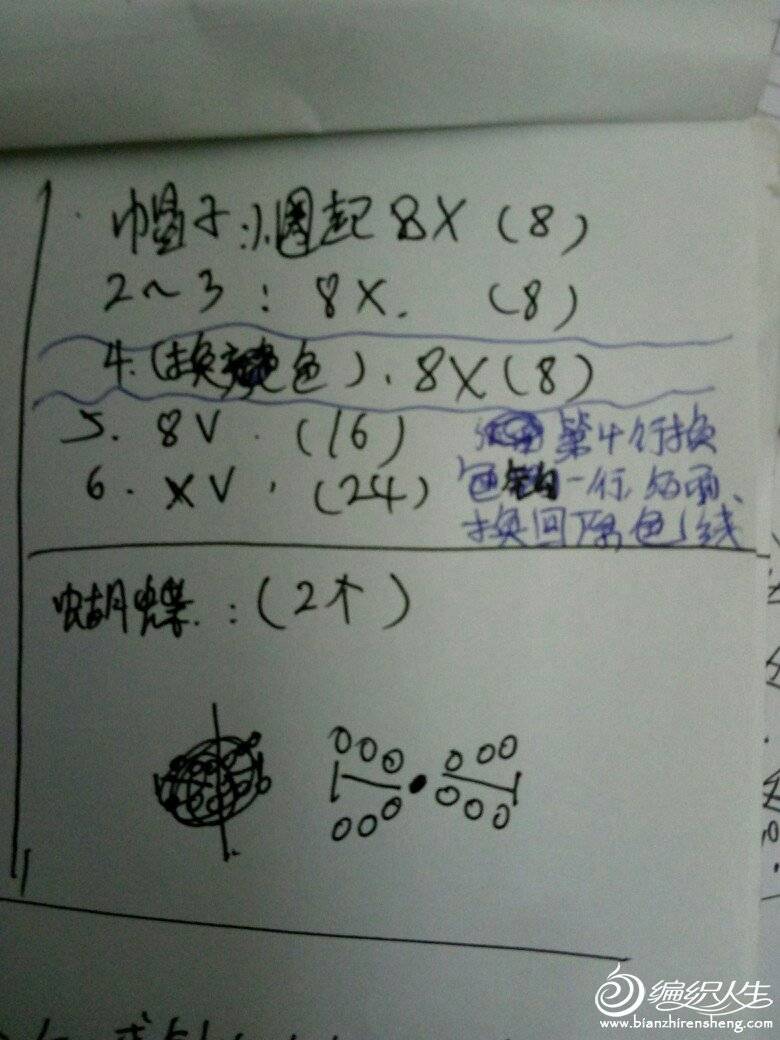 帽子:1.圈起 8X (8)
2~3 : 8X. (8)
4.(换色). 8X(8)
5. 8V. (16)
6. XV. (24)
第4行换
色钩一行, 后面、
换回原色线
蝴蝶:(2个)
编织人生
www.bianzhirensheng.com